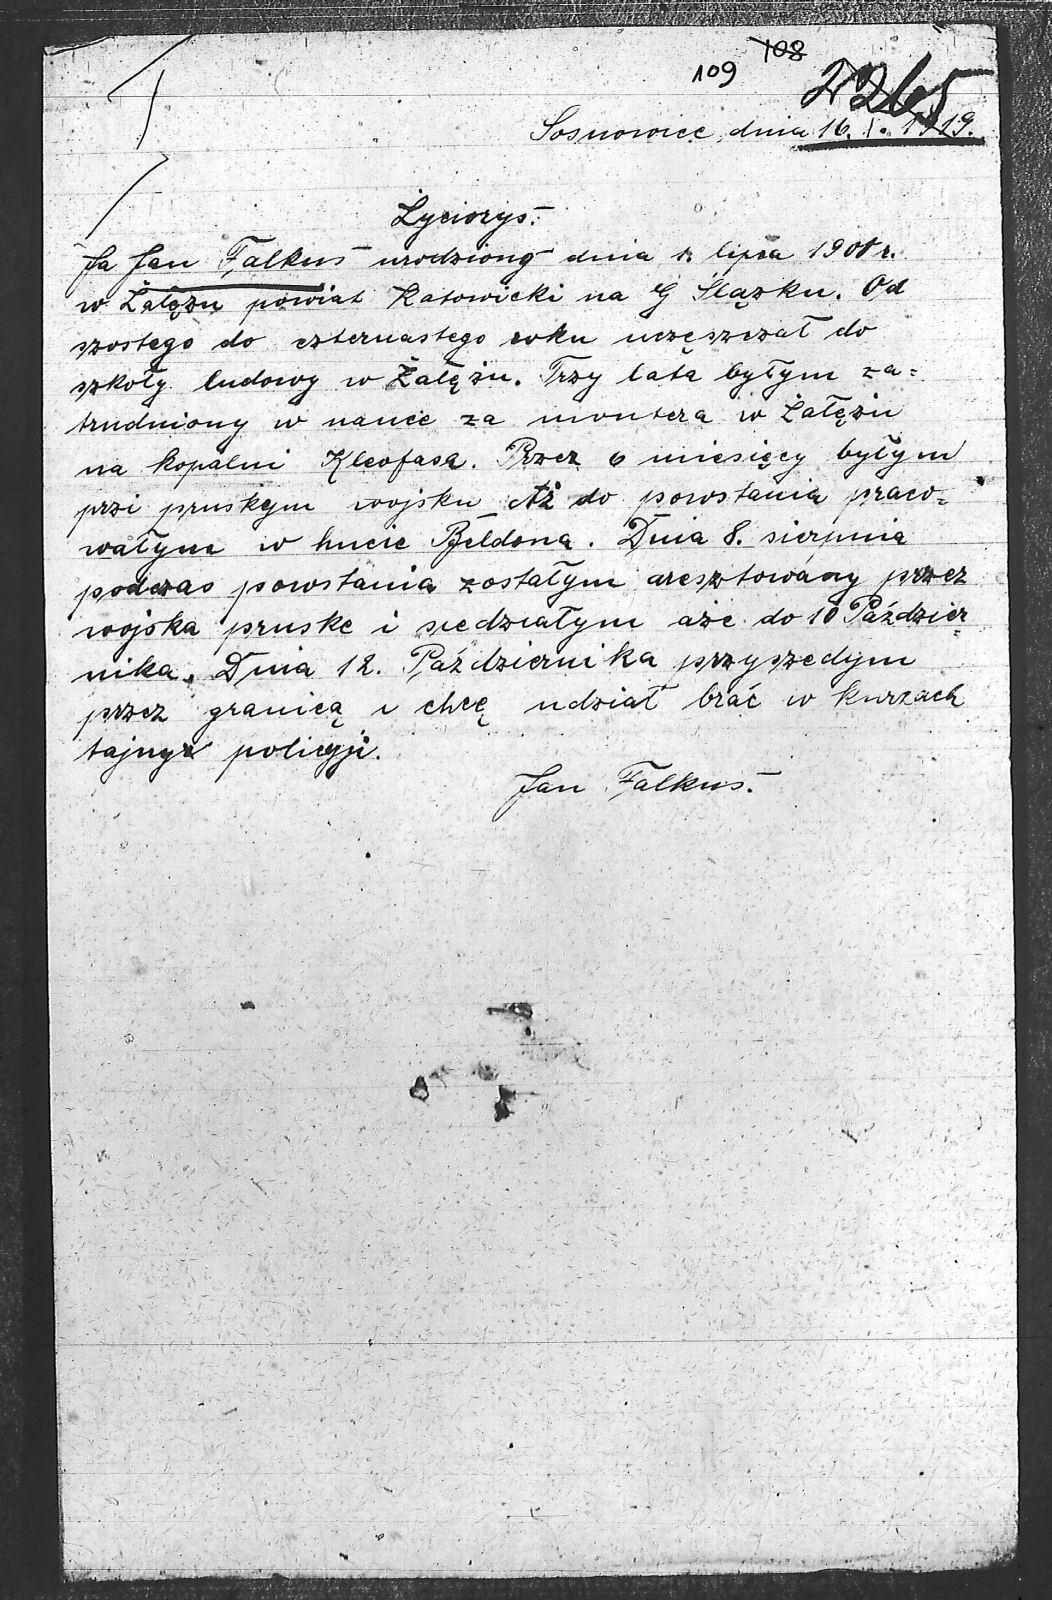 109 108
2265
Sosnowiec, dnia 16. I. 1919.
Życiorys.
Ja Jan Falkus urodziony dnia 1. lipca 1900 r.
w Załężu powiat Katowicki na G Śląsku. Od
szostego do czternastego roku uczęszczał do
szkoły ludowy w Załężu. Trzy lata byłym za=
trudniony w nauce za montera w Załężu
na kopalni Kleofasa. Przez 6 miesięcy byłym
przi pruskym wojsku Aż do powstania praco=
wałym w hucie Beldona. Dnia 8. sierpnia
podczas powstania zostałym aresztowány przez
wojska pruske i siedziałym aże do 10 Paździer=
nika. Dnia 12. Października przyszedym
przez granicą i chcę udział brać w kurzach
tajny policyji.
Jan Falkus.